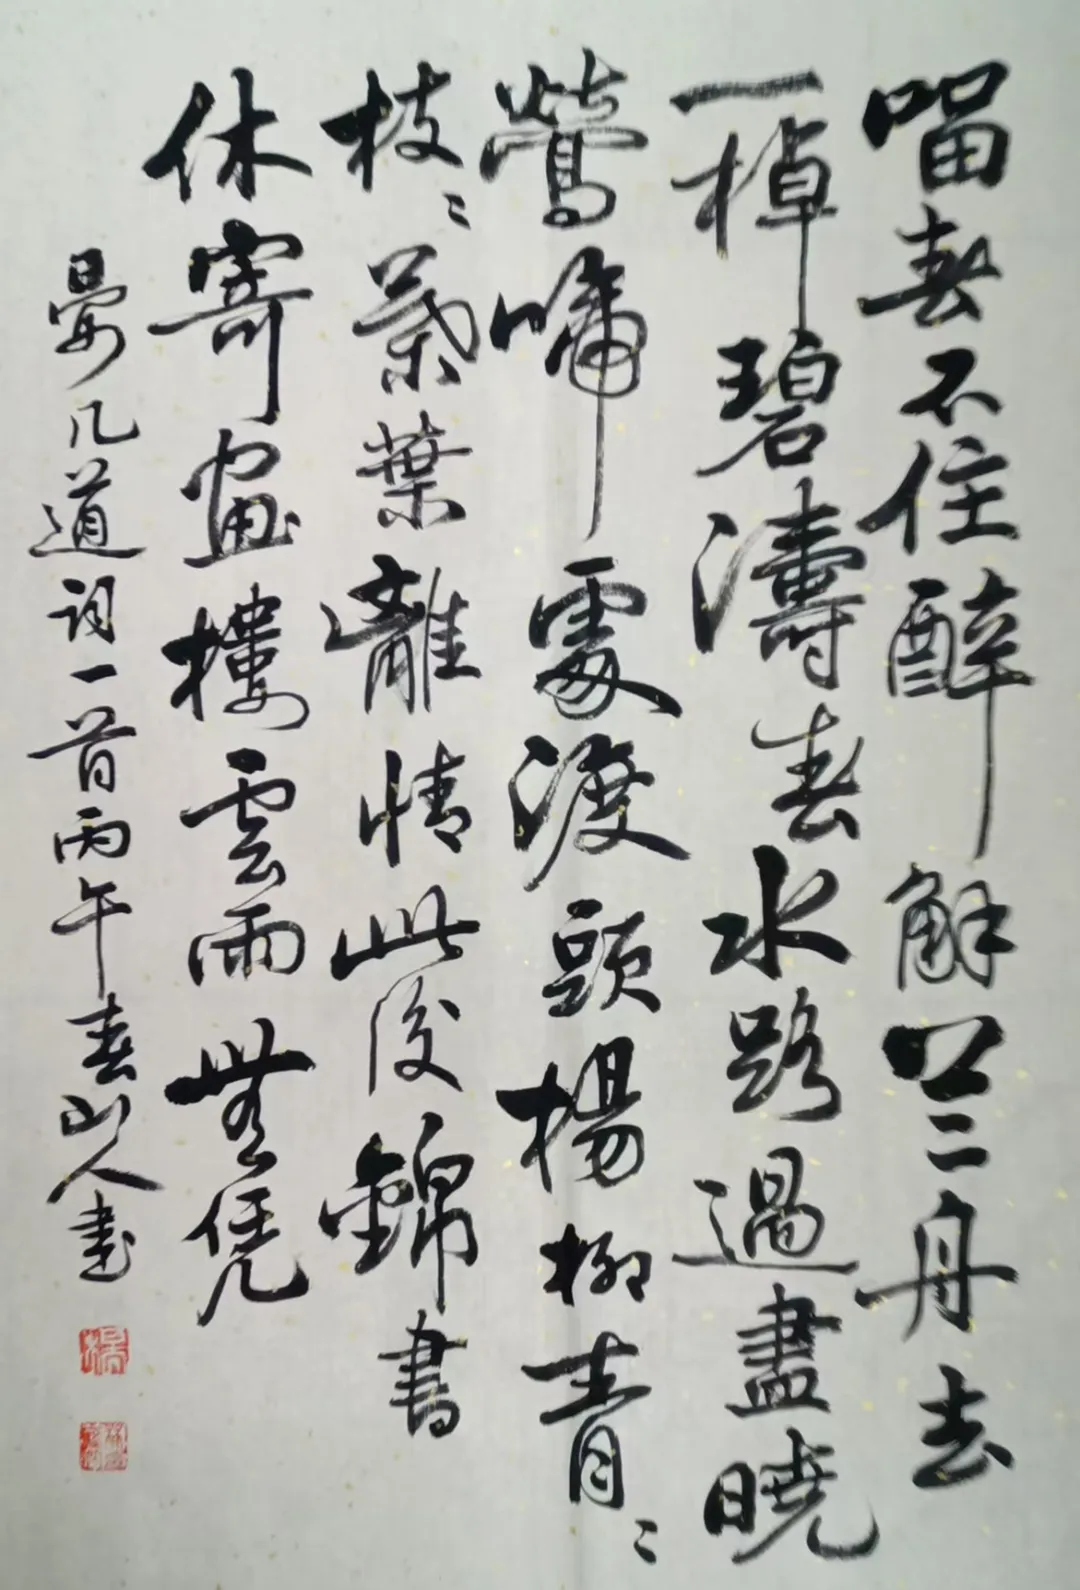 留春不住醉解兰舟去
一棹碧濤春水路過盡曉
鶯啼處渡頭楊柳青〻
枝〻葉葉離情此後錦書
休寄畫樓雲雨無凭
晏几道詞一首丙午春山人書